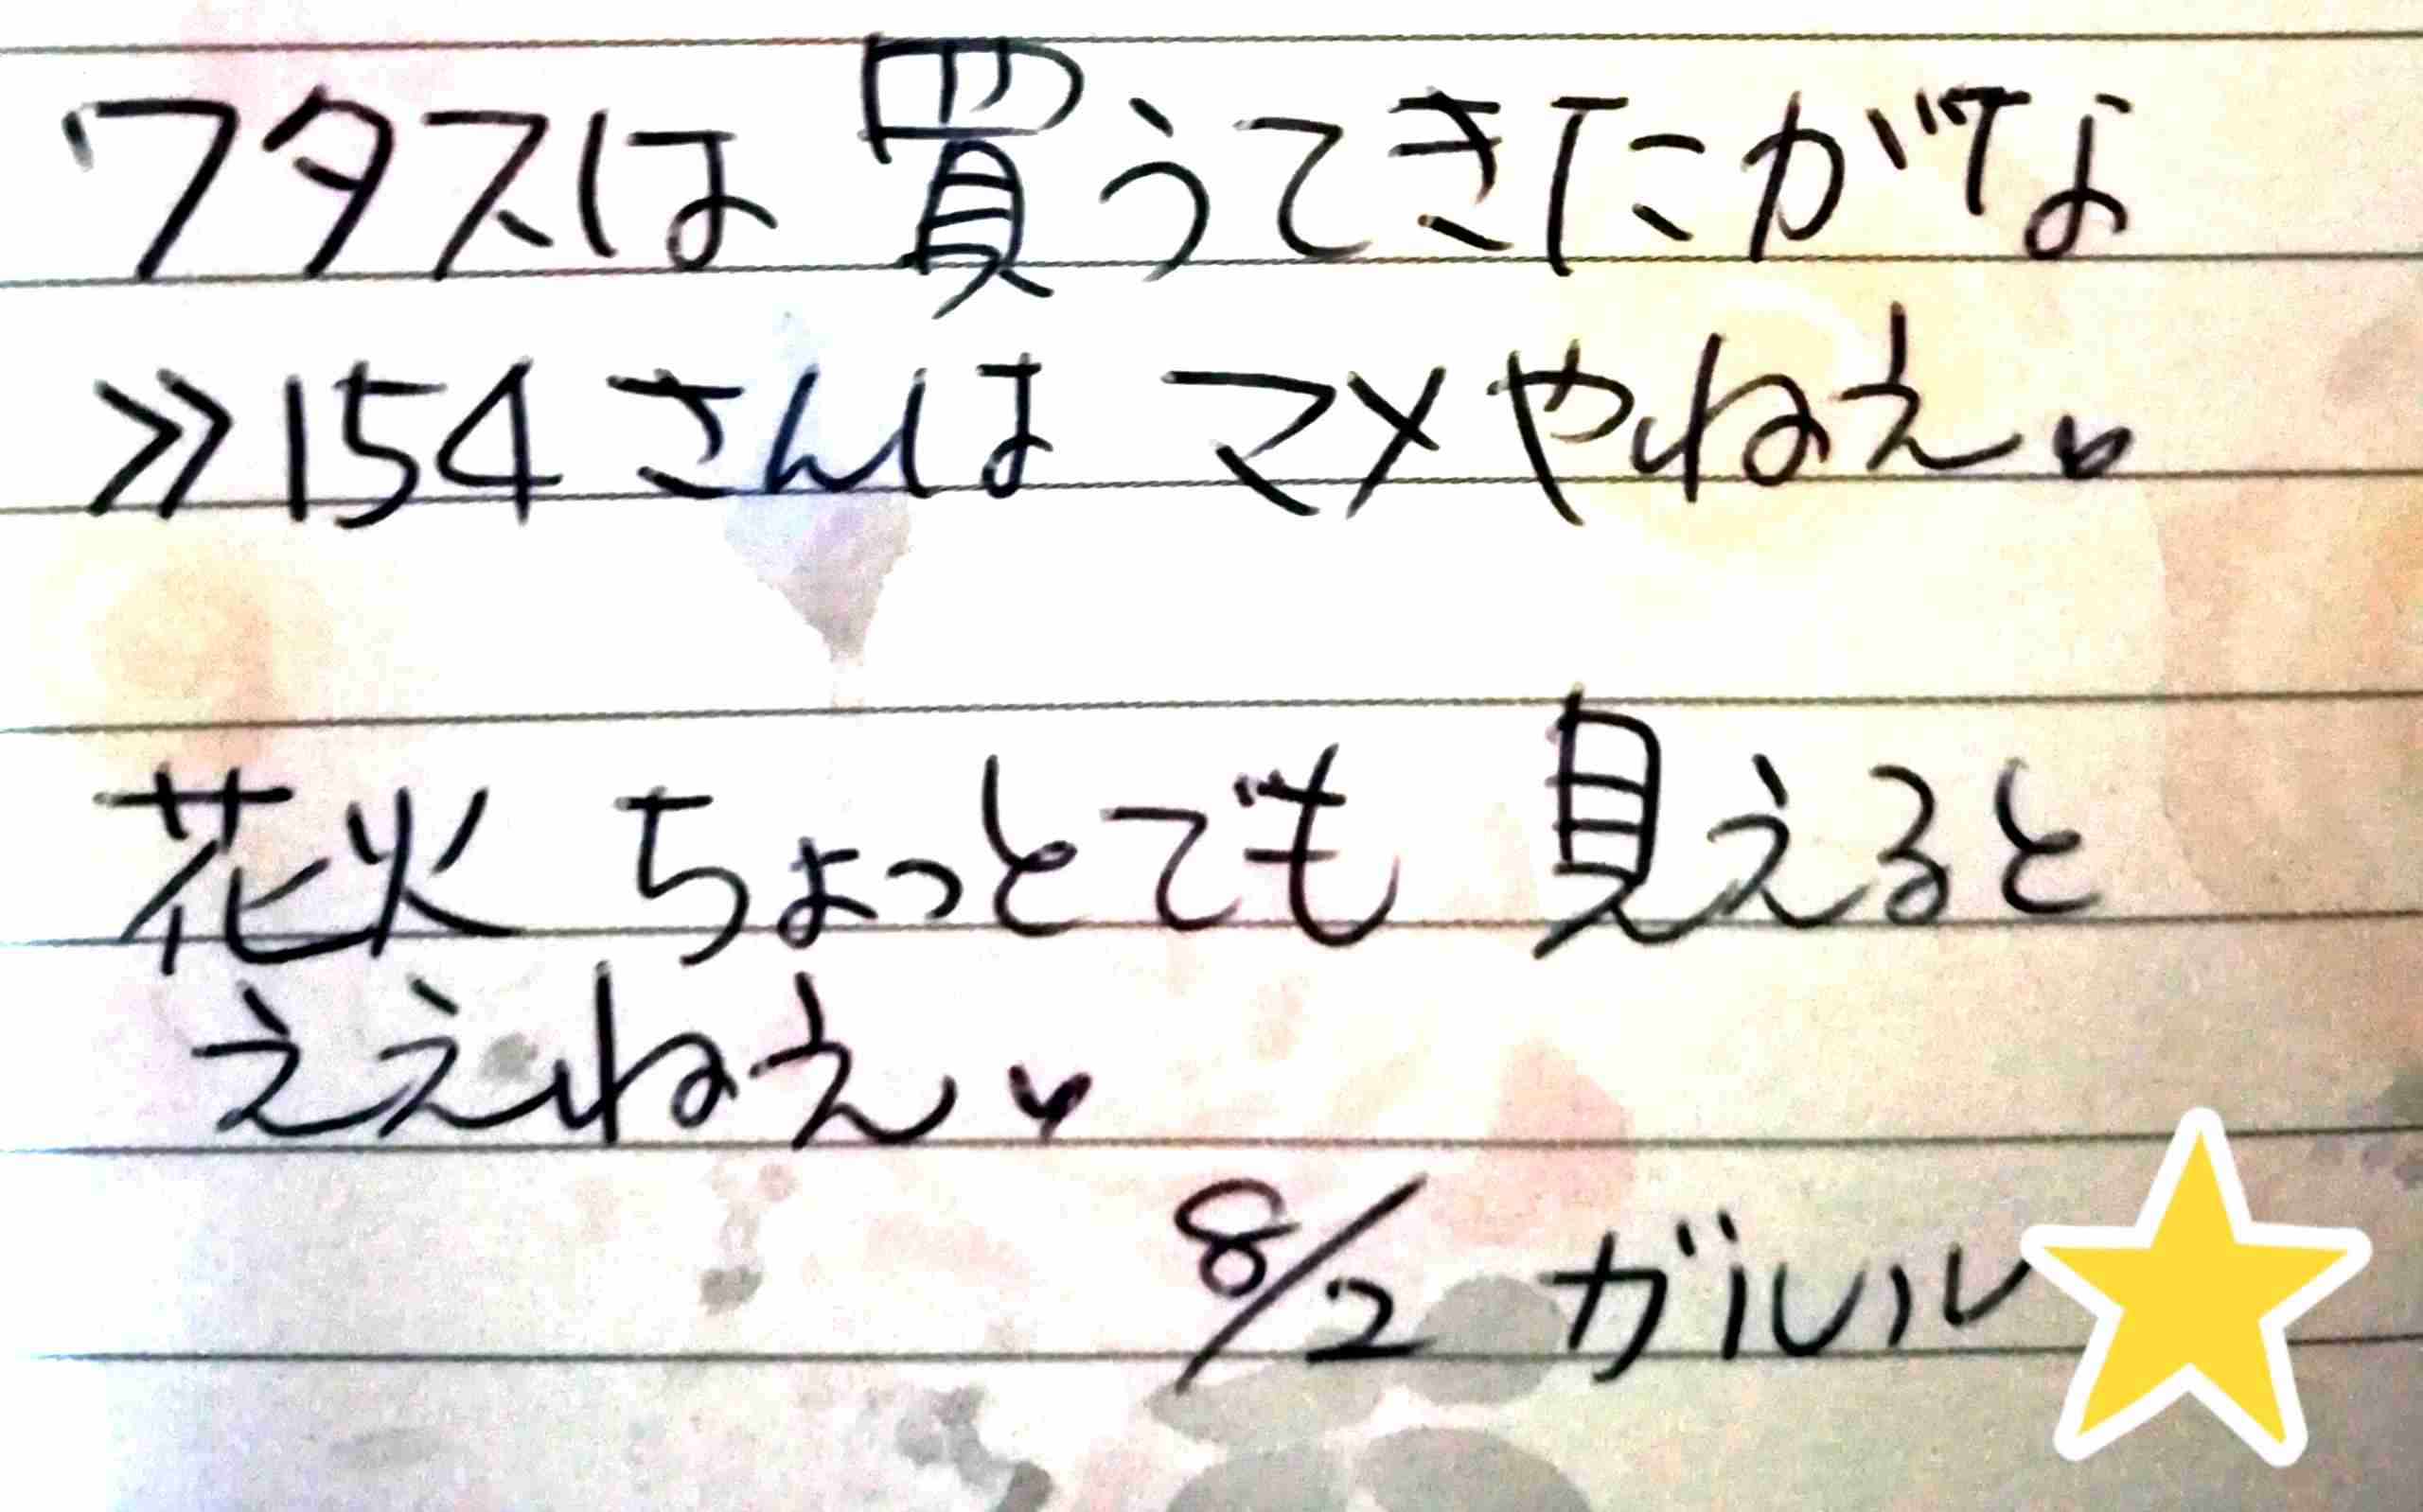 ワタスは 買うてきたがな
≫154 さんは マメやねえ♥
花火 ちょっとでも 見えると
ええねえ♥
8/2 ガルル